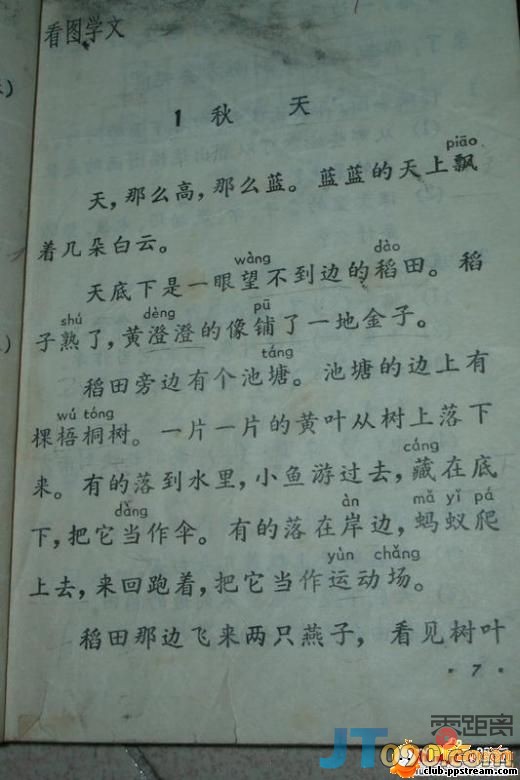 看图学文
1 秋 天
piāo
天，那么高，那么蓝。蓝蓝的天上飘
着几朵白云。
wàng dào
天底下是一眼望不到边的稻田。稻
shú dèng pū
子熟了，黄澄澄的像铺了一地金子。
táng
稻田旁边有个池塘。池塘的边上有
wú tóng
棵梧桐树。一片一片的黄叶从树上落下
cáng
来。有的落到水里，小鱼游过去，藏在底
dàng
下，把它当作伞。有的落在岸边，蚂蚁爬
àn mǎ yǐ pá
上去，来回跑着，把它当作运动场。
yùn chǎng
稻田那边飞来两只燕子，看见树叶
· 7 ·
零距离
JT090.com
club.ppstream.com